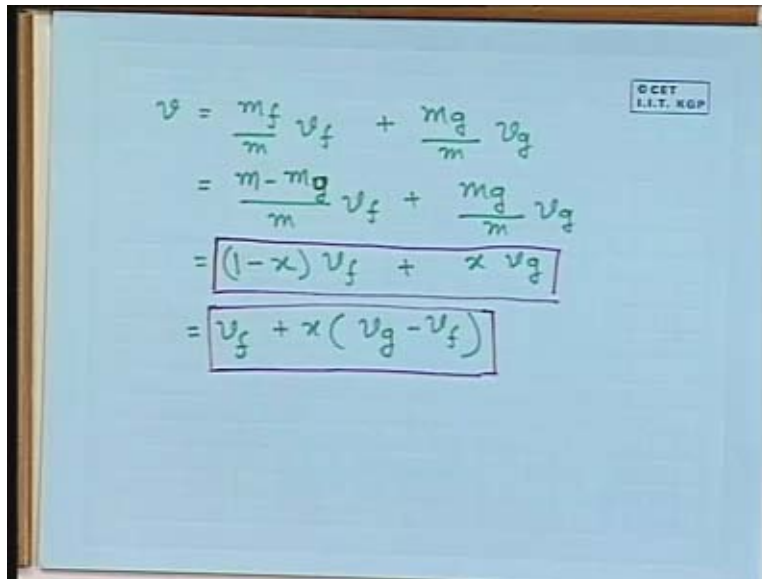 © CET
I.I.T. KGP
v = m_f/m v_f + m_g/m v_g
= m - m_g/m v_f + m_g/m v_g
= (1-x) v_f + x v_g
= v_f + x ( v_g - v_f )